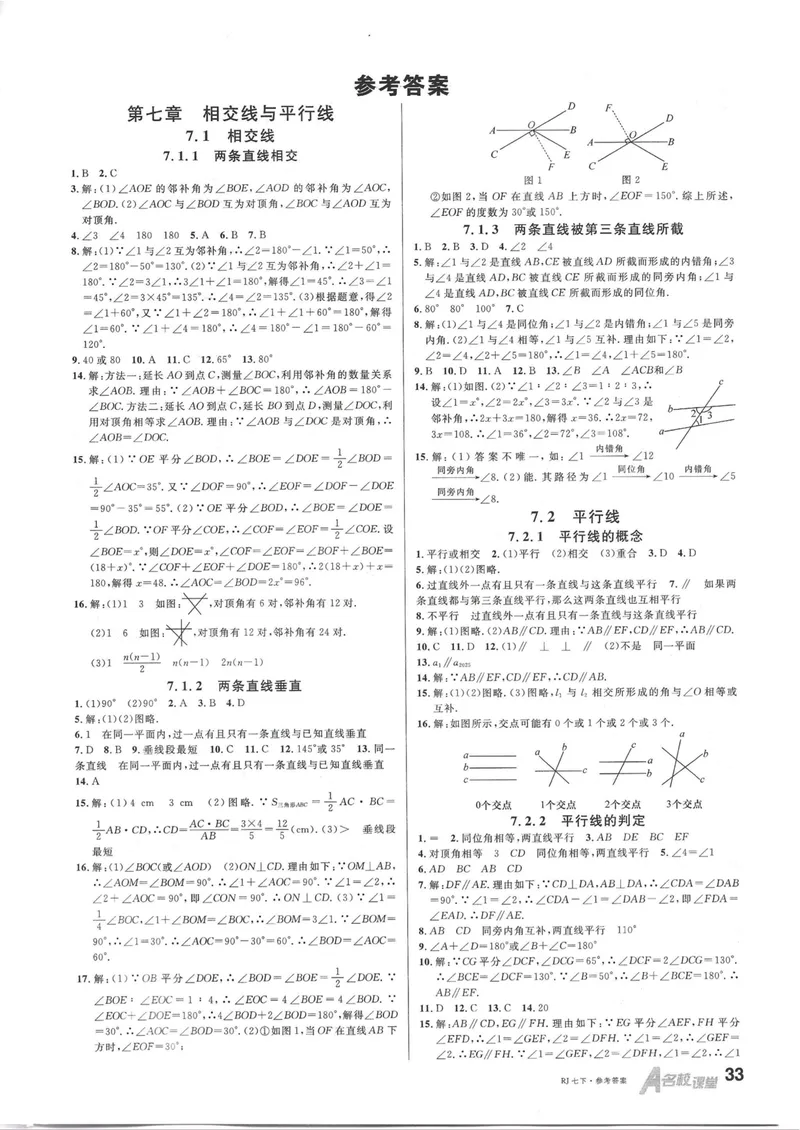 参考答案
第七章 相交线与平行线
7.1 相交线
7.1.1 两条直线相交
1.B 2.C
3.解:(1)∠AOE 的邻补角为∠BOE,∠AOD 的邻补角为∠AOC,
∠BOD.(2)∠AOC 与∠BOD 互为对顶角,∠BOC 与∠AOD 互为
对顶角.
4.∠3 ∠4 180 180 5.A 6.B 7.B
8.解:(1)∵∠1 与∠2 互为邻补角,∴∠2=180°-∠1.∵∠1=50°,∴
∠2=180°-50°=130°.(2)∵∠1 与∠2 互为邻补角,∴∠2+∠1=
180°.∵∠2=3∠1,∴3∠1+∠1=180°,解得∠1=45°.∴∠3=∠1
=45°,∠2=3×45°=135°.∴∠4=∠2=135°.(3)根据题意,得∠2
=∠1+60°,又∵∠1+∠2=180°,∴∠1+∠1+60°=180°,解得
∠1=60°.∵∠1+∠4=180°,∴∠4=180°-∠1=180°-60°=
120°.
9.40 或 80 10.A 11.C 12.65° 13.80°
14.解:方法一:延长 AO 到点 C,测量∠BOC,利用邻补角的数量关系
求∠AOB.理由:∵∠AOB+∠BOC=180°,∴∠AOB=180°-
∠BOC.方法二:延长 AO 到点 C,延长 BO 到点 D,测量∠DOC,利
用对顶角相等求∠AOB.理由:∵∠AOB 与∠DOC 是对顶角,∴
∠AOB=∠DOC.
15.解:(1)∵OE 平分∠BOD,∴∠BOE=∠DOE=1/2∠BOD=
1/2∠AOC=35°.又∵∠DOF=90°,∴∠EOF=∠DOF-∠DOE
=90°-35°=55°.(2)∵OE 平分∠BOD,∴∠BOE=∠DOE=
1/2∠BOD.∵OF 平分∠COE,∴∠COF=∠EOF=1/2∠COE.设
∠BOE=x°,则∠DOE=x°,∠COF=∠EOF=∠BOF+∠BOE=
(18+x)°.∵∠COF+∠EOF+∠DOE=180°,∴2(18+x)+x=
180,解得 x=48.∴∠AOC=∠BOD=2x°=96°.
16.解:(1)1 3 如图: ,对顶角有 6 对,邻补角有 12 对.
(2)1 6 如图: ,对顶角有 12 对,邻补角有 24 对.
(3)1 n(n-1)/2 n(n-1) 2n(n-1)
7.1.2 两条直线垂直
1.(1)90° (2)90° 2.A 3.B 4.D
5.解:(1)(2)图略.
6.1 在同一平面内,过一点有且只有一条直线与已知直线垂直
7.D 8.B 9.垂线段最短 10.C 11.C 12.145°或 35° 13.同一
条直线 在同一平面内,过一点有且只有一条直线与已知直线垂直
14.A
15.解:(1)4 cm 3 cm (2)图略.∵S三角形ABC=1/2AC·BC=
1/2AB·CD,∴CD=AC·BC/AB=3×4/5=12/5(cm).(3)> 垂线段
最短
16.解:(1)∠BOC(或∠AOD) (2)ON⊥CD.理由如下:∵OM⊥AB,
∴∠AOM=∠BOM=90°.∴∠1+∠AOC=90°.∵∠1=∠2,∴
∠2+∠AOC=90°,即∠CON=90°.∴ON⊥CD.(3)∵∠1=
1/4∠BOC,∠1+∠BOM=∠BOC,∴∠BOM=3∠1.∵∠BOM=
90°,∴∠1=30°.∴∠AOC=90°-30°=60°.∴∠BOD=∠AOC=
60°.
17.解:(1)∵OB 平分∠DOE,∴∠BOD=∠BOE=1/2∠DOE.∵
∠BOE∶∠EOC=1∶4,∴∠EOC=4∠BOE=4∠BOD.∵
∠EOC+∠DOE=180°,∴4∠BOD+2∠BOD=180°,解得∠BOD
=30°.∴∠AOC=∠BOD=30°.(2)①如图 1,当 OF 在直线 AB 下
方时,∠EOF=30°;
A B C D E F O
图 1
A B C D E F O
图 2
②如图 2,当 OF 在直线 AB 上方时,∠EOF=150°.综上所述,
∠EOF 的度数为 30°或 150°.
7.1.3 两条直线被第三条直线所截
1.B 2.B 3.D 4.∠2 ∠4
5.解:∠1 与∠2 是直线 AB,CE 被直线 AD 所截而形成的内错角;∠3
与∠4 是直线 AD,BC 被直线 CE 所截而形成的同旁内角;∠1 与
∠4 是直线 AD,BC 被直线 CE 所截而形成的同位角.
6.80° 80° 100° 7.C
8.解:(1)∠1 与∠4 是同位角;∠1 与∠2 是内错角;∠1 与∠5 是同旁
内角.(2)∠1 与∠4 相等,∠1 与∠5 互补.理由如下:∵∠1=∠2,
∠2=∠4,∠2+∠5=180°,∴∠1=∠4,∠1+∠5=180°.
9.B 10.D 11.A 12.B 13.∠B ∠A ∠ACB和∠B
14.解:(1)如图.(2)∵∠1∶∠2∶∠3=1∶2∶3,∴
设∠1=x°,∠2=2x°,∠3=3x°.∵∠2 与∠3 是
邻补角,∴2x+3x=180,解得 x=36.∴2x=72,
3x=108.∴∠1=36°,∠2=72°,∠3=108°.
a b c 1 2 3
15.解:(1)答案不唯一,如:∠1 内错角→ ∠12
同旁内角→∠8.(2)能.其路径为∠1 同位角→∠10 内错角→∠5
同旁内角→∠8.
7.2 平行线
7.2.1 平行线的概念
1.平行或相交 2.(1)平行 (2)相交 (3)重合 3.D 4.D
5.解:(1)(2)图略.
6.过直线外一点有且只有一条直线与这条直线平行 7.∥ 如果两
条直线都与第三条直线平行,那么这两条直线也互相平行
8.不平行 过直线外一点有且只有一条直线与这条直线平行
9.解:(1)图略.(2)AB∥CD.理由:∵AB∥EF,CD∥EF,∴AB∥CD.
10.C 11.D 12.(1)∥ ⊥ ⊥ ∥ (2)不是 同一平面
13.a₁∥a₂₀₂₅
14.解:∵AB∥EF,CD∥EF,∴CD∥AB.
15.解:(1)(2)图略.(3)图略,l₁ 与 l₂ 相交所形成的角与∠O 相等或
互补.
16.解:如图所示,交点可能有 0 个或 1 个或 2 个或 3 个.
a b c
a b c
a b c
a b c
0个交点 1个交点 2个交点 3个交点
7.2.2 平行线的判定
1.= 2.同位角相等,两直线平行 3.AB DE BC EF
4.对顶角相等 3 CD 同位角相等,两直线平行 5.∠4=∠1
6.AD BC AB CD
7.解:DF∥AE.理由如下:∵CD⊥DA,AB⊥DA,∴∠CDA=∠DAB
=90°.∵∠1=∠2,∴∠CDA-∠1=∠DAB-∠2,即∠FDA=
∠EAD.∴DF∥AE.
8.AB CD 同旁内角互补,两直线平行 110°
9.∠A+∠D=180°或∠B+∠C=180°
10.解:∵CG 平分∠DCF,∠DCG=65°,∴∠DCF=2∠DCG=130°.
∴∠BCE=∠DCF=130°.∵∠B=50°,∴∠B+∠BCE=180°.∴
AB∥EF.
11.D 12.C 13.C 14.20
15.解:AB∥CD,EG∥FH.理由如下:∵EG 平分∠AEF,FH 平分
∠EFD,∴∠1=∠GEF,∠2=∠DFH.∵∠1=∠2,∴∠GEF=
∠2.∴EG∥FH.∵∠1=∠GEF,∠2=∠DFH,∠1=∠2,∴∠1
RJ 七下·参考答案
A名校课堂
33